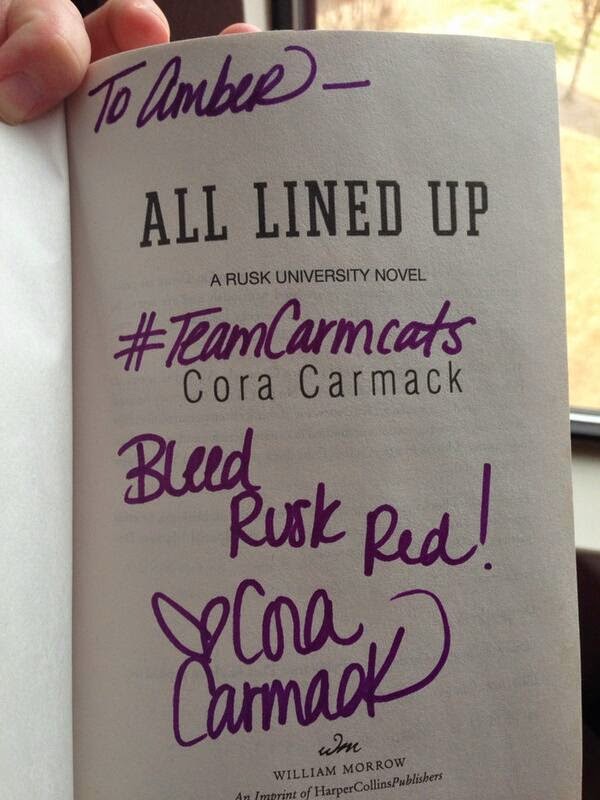 To Amber —
ALL LINED UP
A RUSK UNIVERSITY NOVEL
#TeamCarmcats
Cora Carmack
Bleed
Rusk Red!
♡Cora
Carmack
wm
WILLIAM MORROW
An Imprint of HarperCollinsPublishers